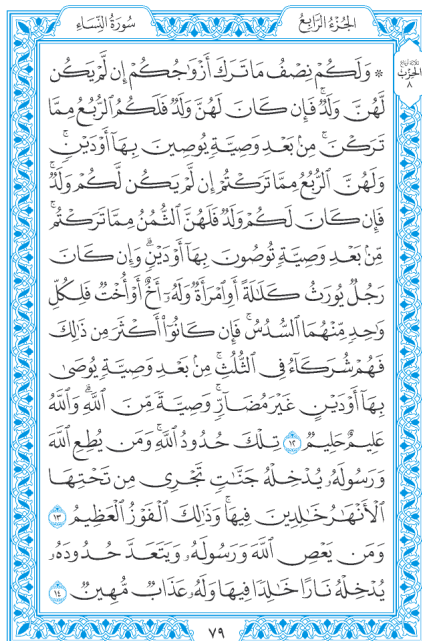 الجزء الرابع
سورة النساء
الحزب
٨
۞ وَلَكُمْ نِصْفُ مَا تَرَكَ أَزْوَٰجُكُمْ إِن لَّمْ يَكُن
لَّهُنَّ وَلَدٌۚ فَإِن كَانَ لَهُنَّ وَلَدٌ فَلَكُمُ ٱلرُّبُعُ مِمَّا
تَرَكْنَۚ مِنۢ بَعْدِ وَصِيَّةٍ يُوصِينَ بِهَآ أَوْ دَيْنٍۚ
وَلَهُنَّ ٱلرُّبُعُ مِمَّا تَرَكْتُمْ إِن لَّمْ يَكُن لَّكُمْ وَلَدٌۚ
فَإِن كَانَ لَكُمْ وَلَدٌ فَلَهُنَّ ٱلثُّمُنُ مِمَّا تَرَكْتُمۚ
مِّنۢ بَعْدِ وَصِيَّةٍ تُوصُونَ بِهَآ أَوْ دَيْنٍۗ وَإِن كَانَ
رَجُلٌ يُورَثُ كَلَٰلَةً أَوِ ٱمْرَأَةٌ وَلَهُۥٓ أَخٌ أَوْ أُخْتٌ فَلِكُلِّ
وَٰحِدٍ مِّنْهُمَا ٱلسُّدُسُۚ فَإِن كَانُوٓا۟ أَكْثَرَ مِن ذَٰلِكَ
فَهُمْ شُرَكَآءُ فِى ٱلثُّلُثِۚ مِنۢ بَعْدِ وَصِيَّةٍ يُوصَىٰ
بِهَآ أَوْ دَيْنٍ غَيْرَ مُضَآرٍّۚ وَصِيَّةً مِّنَ ٱللَّهِۗ وَٱللَّهُ
عَلِيمٌ حَلِيمٌ ١٢ تِلْكَ حُدُودُ ٱللَّهِۚ وَمَن يُطِعِ ٱللَّهَ
وَرَسُولَهُۥ يُدْخِلْهُ جَنَّٰتٍ تَجْرِى مِن تَحْتِهَا
ٱلْأَنْهَٰرُ خَٰلِدِينَ فِيهَاۚ وَذَٰلِكَ ٱلْفَوْزُ ٱلْعَظِيمُ ١٣
وَمَن يَعْصِ ٱللَّهَ وَرَسُولَهُۥ وَيَتَعَدَّ حُدُودَهُۥ
يُدْخِلْهُ نَارًا خَٰلِدًا فِيهَا وَلَهُۥ عَذَابٌ مُّهِينٌ ١٤
٧٩